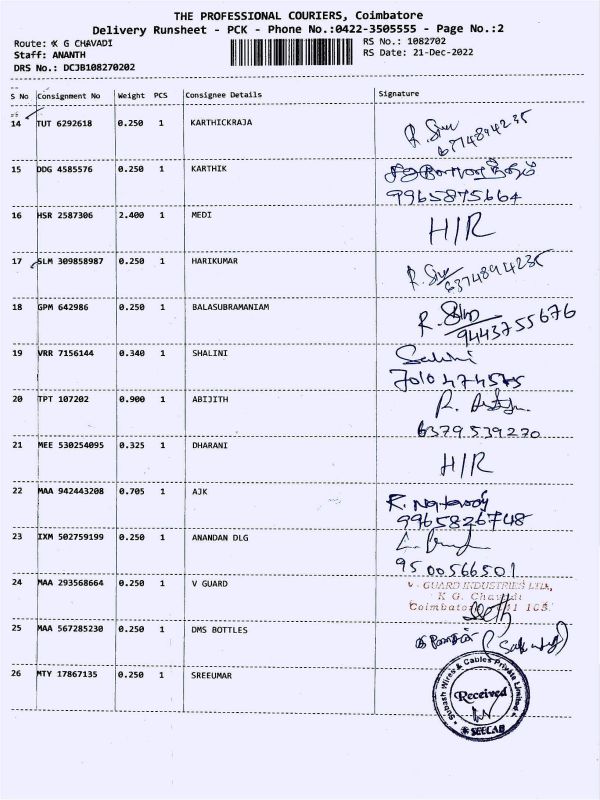 THE PROFESSIONAL COURIERS, Coimbatore
Delivery Runsheet - PCK - Phone No.:0422-3505555 - Page No.:2
Route: K G CHAVADI
RS No.: 1082702
Staff: ANANTH
RS Date: 21-Dec-2022
DRS No.: DCJB108270202
S No Consignment No Weight PCS Consignee Details Signature
14 TUT 6292618 0.250 1 KARTHICKRAJA
6374894235
15 DDG 4585576 0.250 1 KARTHIK
9965875664
16 HSR 2587306 2.400 1 MEDI H/R
17 SLM 309858987 0.250 1 HARIKUMAR
6374894235
18 GPM 642986 0.250 1 BALASUBRAMANIAM
9443755676
19 VRR 7156144 0.340 1 SHALINI
7010474575
20 TPT 107202 0.900 1 ABIJITH
6379539270
21 MEE 530254095 0.325 1 DHARANI H/R
22 MAA 942443208 0.705 1 AJK
9965826748
23 IXM 502759199 0.250 1 ANANDAN DLG
9500566501
24 MAA 293568664 0.250 1 V GUARD
V - GUARD INDUSTRIES LTD.,
K G. Chavadi
Coimbatore
25 MAA 567285230 0.250 1 DMS BOTTLES
26 MTY 17867135 0.250 1 SREEUMAR
Subash Wires & Cables Private Limited
Received
SEELAB